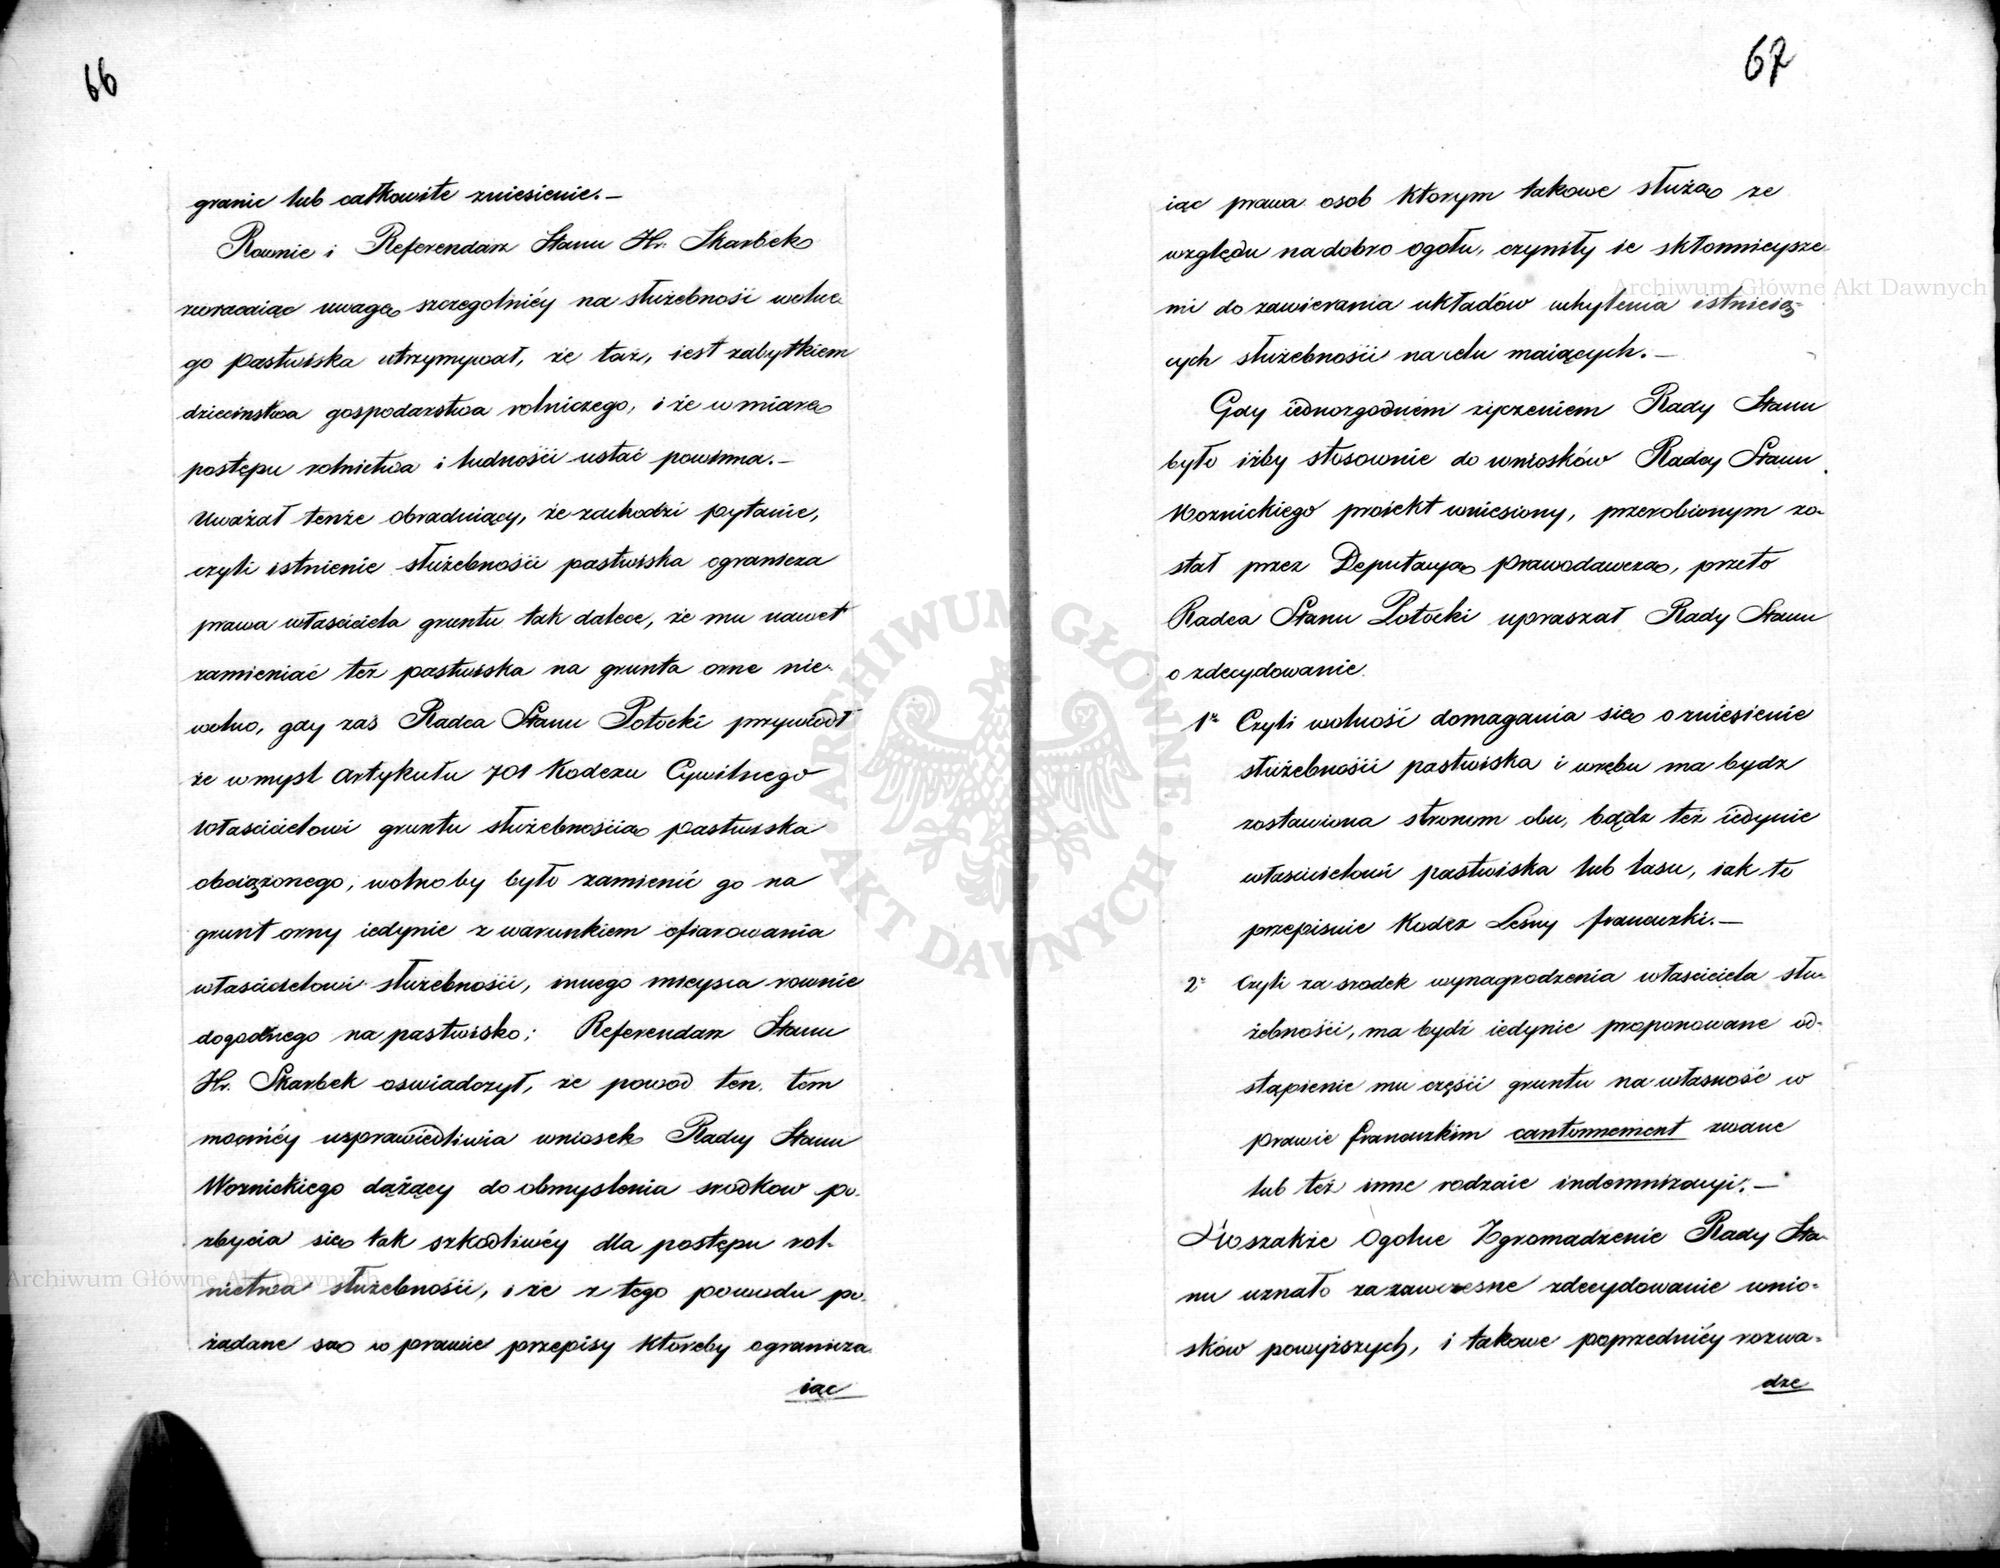 66
granic lub całkowite zniesienie.—
Rownie i Referendarz Stanu Hr. Skarbek
zwracaiąc uwagę szczegolniéy na służebność wolne-
go pastwiska utrzymywał, że taż, iest zabytkiem
dzieciństwa gospodarstwa rolniczego, i że w miarę
postępu rolnictwa i ludności ustać powinna.—
Uważał tenże obraduiący, że zachodzi pytanie,
czyli istnienie służebności pastwiska ogranicza
prawa właściciela gruntu tak dalece, że mu nawet
zamieniać też pastwiska na grunta orne nie-
wolno, gdy zaś Radca Stanu Potocki przywiódł
że w myśl Artykułu 701 Kodexu Cywilnego
właścicielowi gruntu służebnością pastwiska
obciążonego, wolno by było zamienić go na
grunt orny iedynie z warunkiem ofiarowania
właścicielowi służebności, innego mieysca rownie
dogodnego na pastwisko; Referendarz Stanu
Hr. Skarbek oswiadczył, że powod ten, tem
mocniéy usprawiedliwia wniosek Radcy Stanu
Woznickiego dążący do obmyslenia srodkow po-
zbycia się tak szkodliwéy dla postępu rol-
nictwa służebności, i że z tego powodu po-
żądane są w prawie przepisy któreby ogranicza-
iąc
67
iąc prawa osob ktorym takowe służą ze
względu na dobro ogołu, czyniły ie skłonnieysze-
mi do zawierania układów uchylenia istnieią-
cych służebności na celu maiących.—
Gdy iednozgodném życzeniem Rady Stanu
było iżby stosownie do wniosków Radcy Stanu
Woznickiego proiekt wniesiony, przerobionym zo-
stał przez Deputacyą Prawodawczą, przeto
Radca Stanu Potocki upraszał Rady Stanu
o zdecydowanie.
1º Czyli wolność domagania się o zniesienie
służebności pastwiska i wrębu ma bydz
zostawiona stronom obu, bądź też iedynie
właścicielowi pastwiska lub lasu, iak to
przepisuie Kodex Leśny francuzki.—
2º Czyli za srodek wynagrodzenia właściciela słu-
żebności, ma bydź iedynie proponowane od-
stąpienie mu części gruntu na własność w
prawie francuzkim cantonnement zwane
lub też inne rodzaie indemnizacyi.—
Wszakże Ogolne Zgromadzenie Rady Sta-
nu uznało za zawczesne zdecydowanie wnio-
sków powyższych, i takowe poprzedniéy rozwa-
dze
Archiwum Główne Akt Dawnych
Archiwum Główne Akt Dawnych
ARCHIWUM GŁÓWNE · AKT DAWNYCH ·